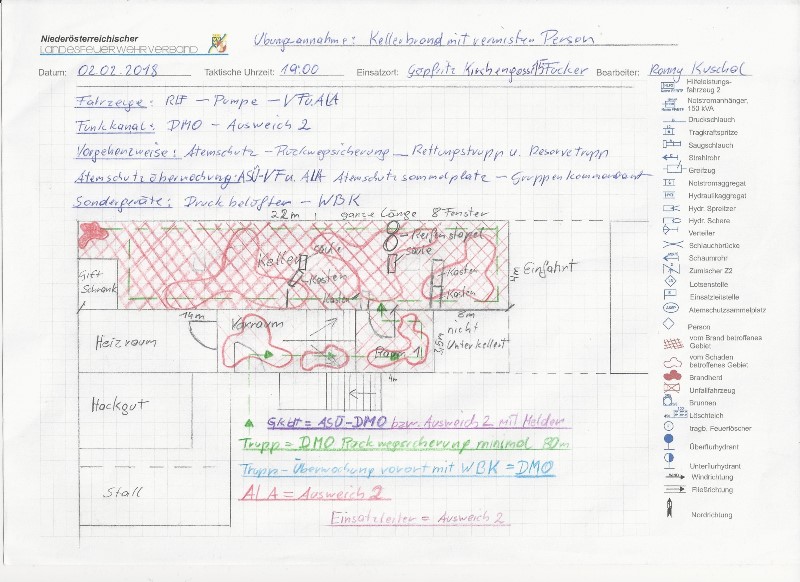 Niederösterreichischer
LANDESFEUERWEHRVERBAND
Übungsannahme: Kellerbrand mit vermisten Person
Datum: 02.02.2018 Taktische Uhrzeit: 19:00 Einsatzort: Göpfritz Kirchengasse 15 Fucker Bearbeiter: Ronny Kuschal
Fahrzeuge: RLF – Pumpe – VF u. ALA
Funkkanal: DMO – Ausweich 2
Vorgehenzweise: Atemschutz – Rückwegsicherung – Rettungstrupp u. Reservetrupp
Atemschutzüberwachung: ASÜ-VF u. ALA Atemschutzsammelplatz – Gruppenkommandant
Sondergeräte: Druckbelüfter – WBK
22m ganze Länge 8 Fenster
Keller
Säule
Kasten
Reifenstapel
Säule
Kasten
Kasten
Kasten
4m
Einfahrt
Gift
Schrank
14m
8m
nicht
Unterkellert
3,5m
Heizraum
Vorraum
Raum 1
4m
Hackgut
Stall
Gkdt = ASÜ-DMO bzw. Ausweich 2 mit Melder
Trupp = DMO Rückwegsicherung minimal 80m
Trupp-Überwachung vorort mit WBK = DMO
ALA = Ausweich 2
Einsatzleiter = Ausweich 2
Hilfeleistungs-
fahrzeug 2
Notstromanhänger,
150 kVA
Druckschlauch
Tragkraftspritze
Saugschlauch
Strahlrohr
Greifzug
Notstromaggregat
Hydraulikaggregat
Hydr. Spreitzer
Hydr. Schere
Verteiler
Schlauchbrücke
Schaumrohr
Zumischer Z2
Lotsenstelle
Einsatzleitstelle
Atemschutzsammelplatz
Person
vom Brand betroffenes
Gebiet
vom Schaden
betroffenes Gebiet
Brandherd
Unfallfahrzeug
Brunnen
Löschteich
tragb. Feuerlöscher
Überflurhydrant
Unterflurhydrant
Windrichtung
Fließrichtung
Nordrichtung